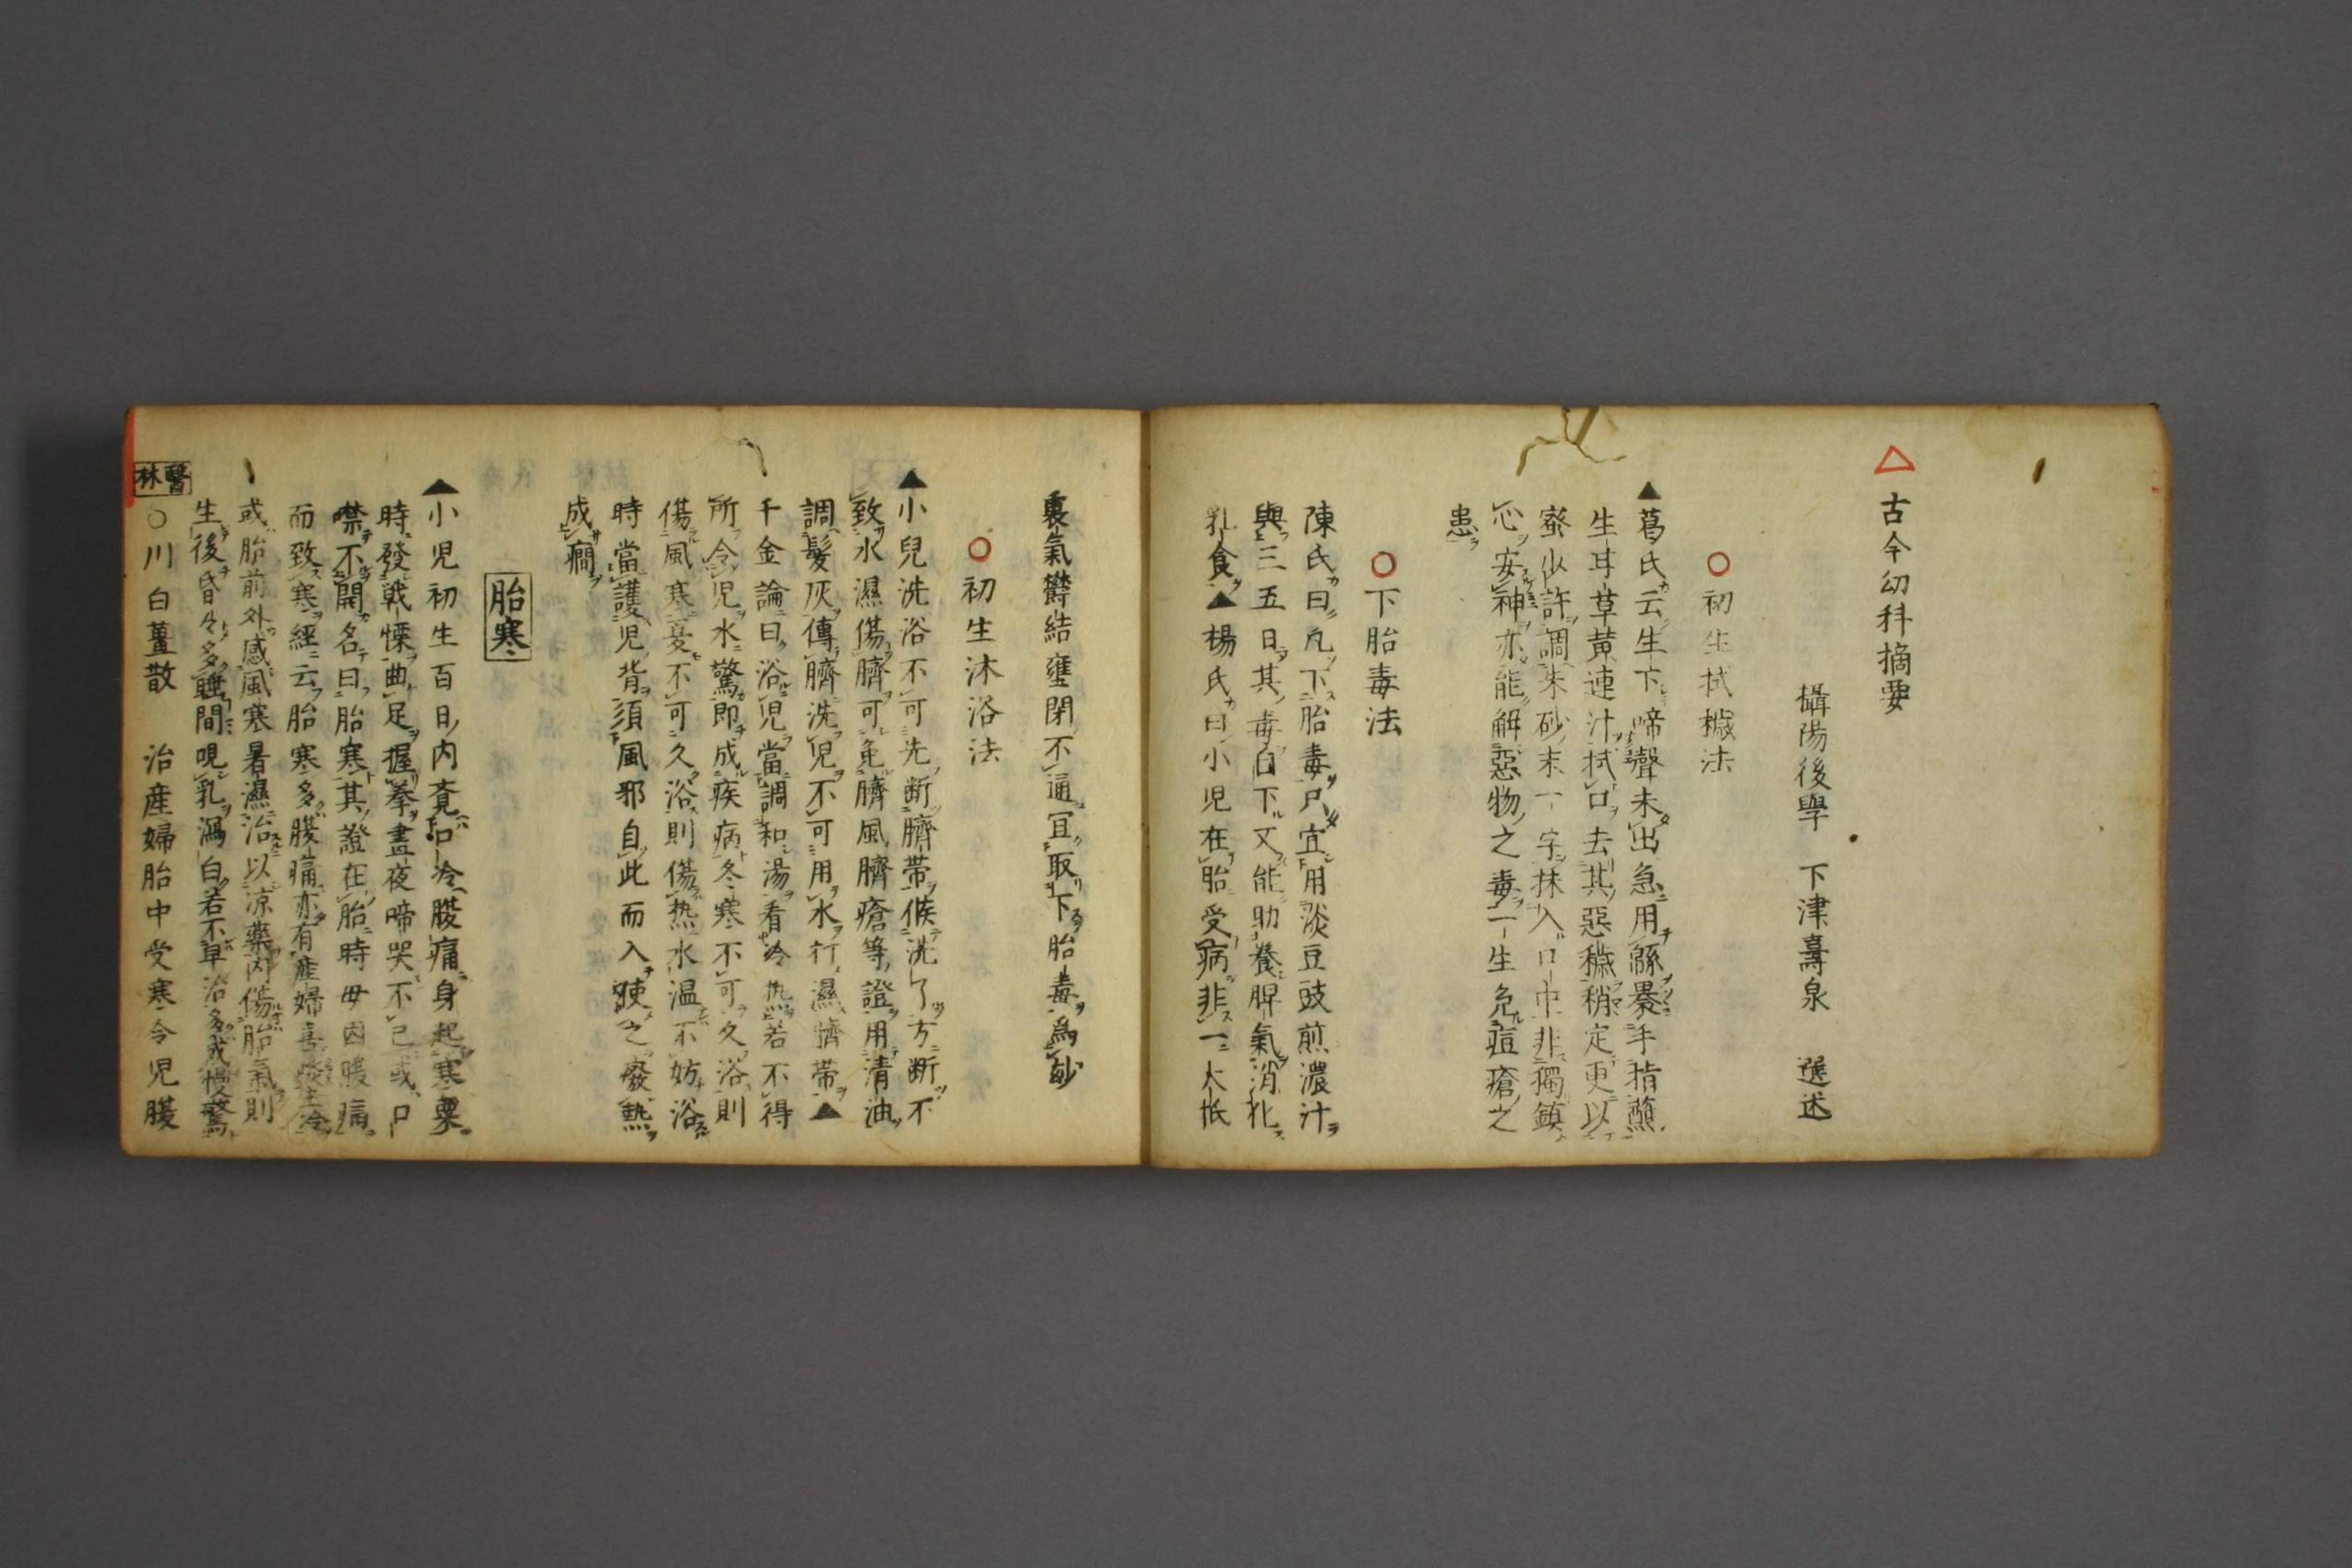 △古今幼科摘要
攝陽後學 下津壽泉 選述
○初生拭穢法
▲葛氏云生下啼聲未出急用綿裹手指蘸
生甘草黄連汁拭口去其惡穢稍定更以
蜜少許調朱砂末一字抹入口中非獨鎮
心安神亦能解惡物之毒一生免痘瘡之
患
○下胎毒法
陳氏曰凡下胎毒只宜用淡豆豉煎濃汁
與三五日其毒自下又能助養脾氣消化
乳食▲楊氏曰小児在胎受病非一大抵
裏氣欝結壅閉不通宜取下胎毒為妙
○初生沐浴法
▲小兒洗浴不可先断臍帯候洗了方断不
致水濕傷臍可免臍風臍瘡等證用清油
調髮灰傅臍洗児不可用水行濕臍帯▲
千金論曰浴児當調和湯看冷熱若不得
所令児水驚即成疾病冬寒不可久浴則
傷風寒夏不可久浴則傷热水温不妨浴
時當護児背須風邪自此而入使之發熱
成癇
胎寒
▲小児初生百日内覚口冷腹痛身起寒粟
時發戰慄曲足握拳晝夜啼哭不已或口
噤不開名曰胎寒其證在胎時母因腹痛
而致寒經云胎寒多腹痛亦有産婦喜啖生冷
或胎前外感風寒暑濕治以凉藥内傷胎氣則
生後昏々多睡間哯乳瀉白若不早治多成慢驚
醫林○川白薑散 治産婦胎中受寒令児腹